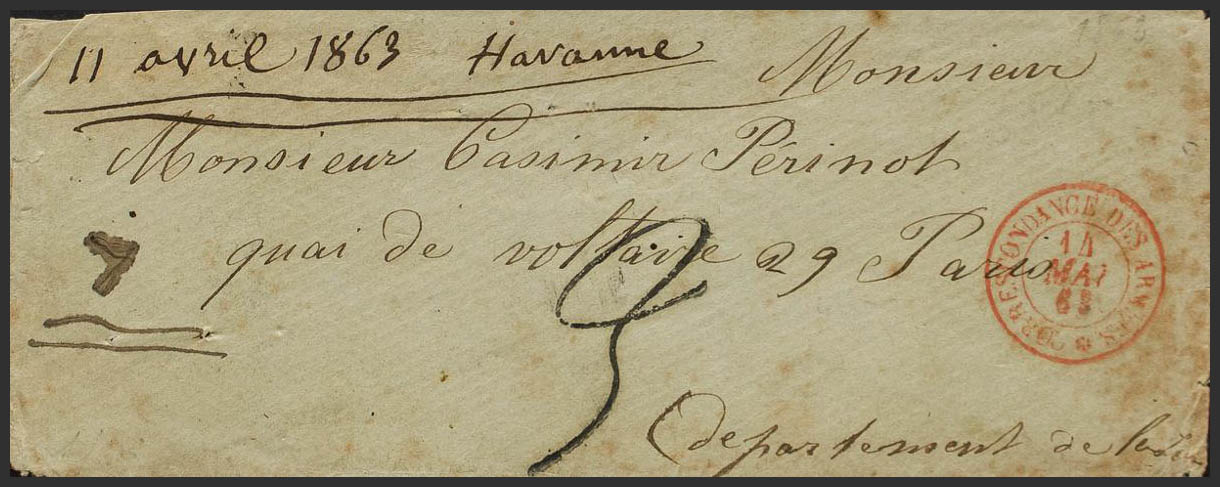 11 avril 1863 Havanne
Monsieur
Monsieur Casimir Périnot
quai de voltaire 29 Paris
CORRESPONDANCE DES ARMÉES
14
MAI
63
departement de la